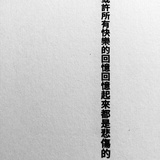 許所有快樂的回憶回憶起來都是悲傷的